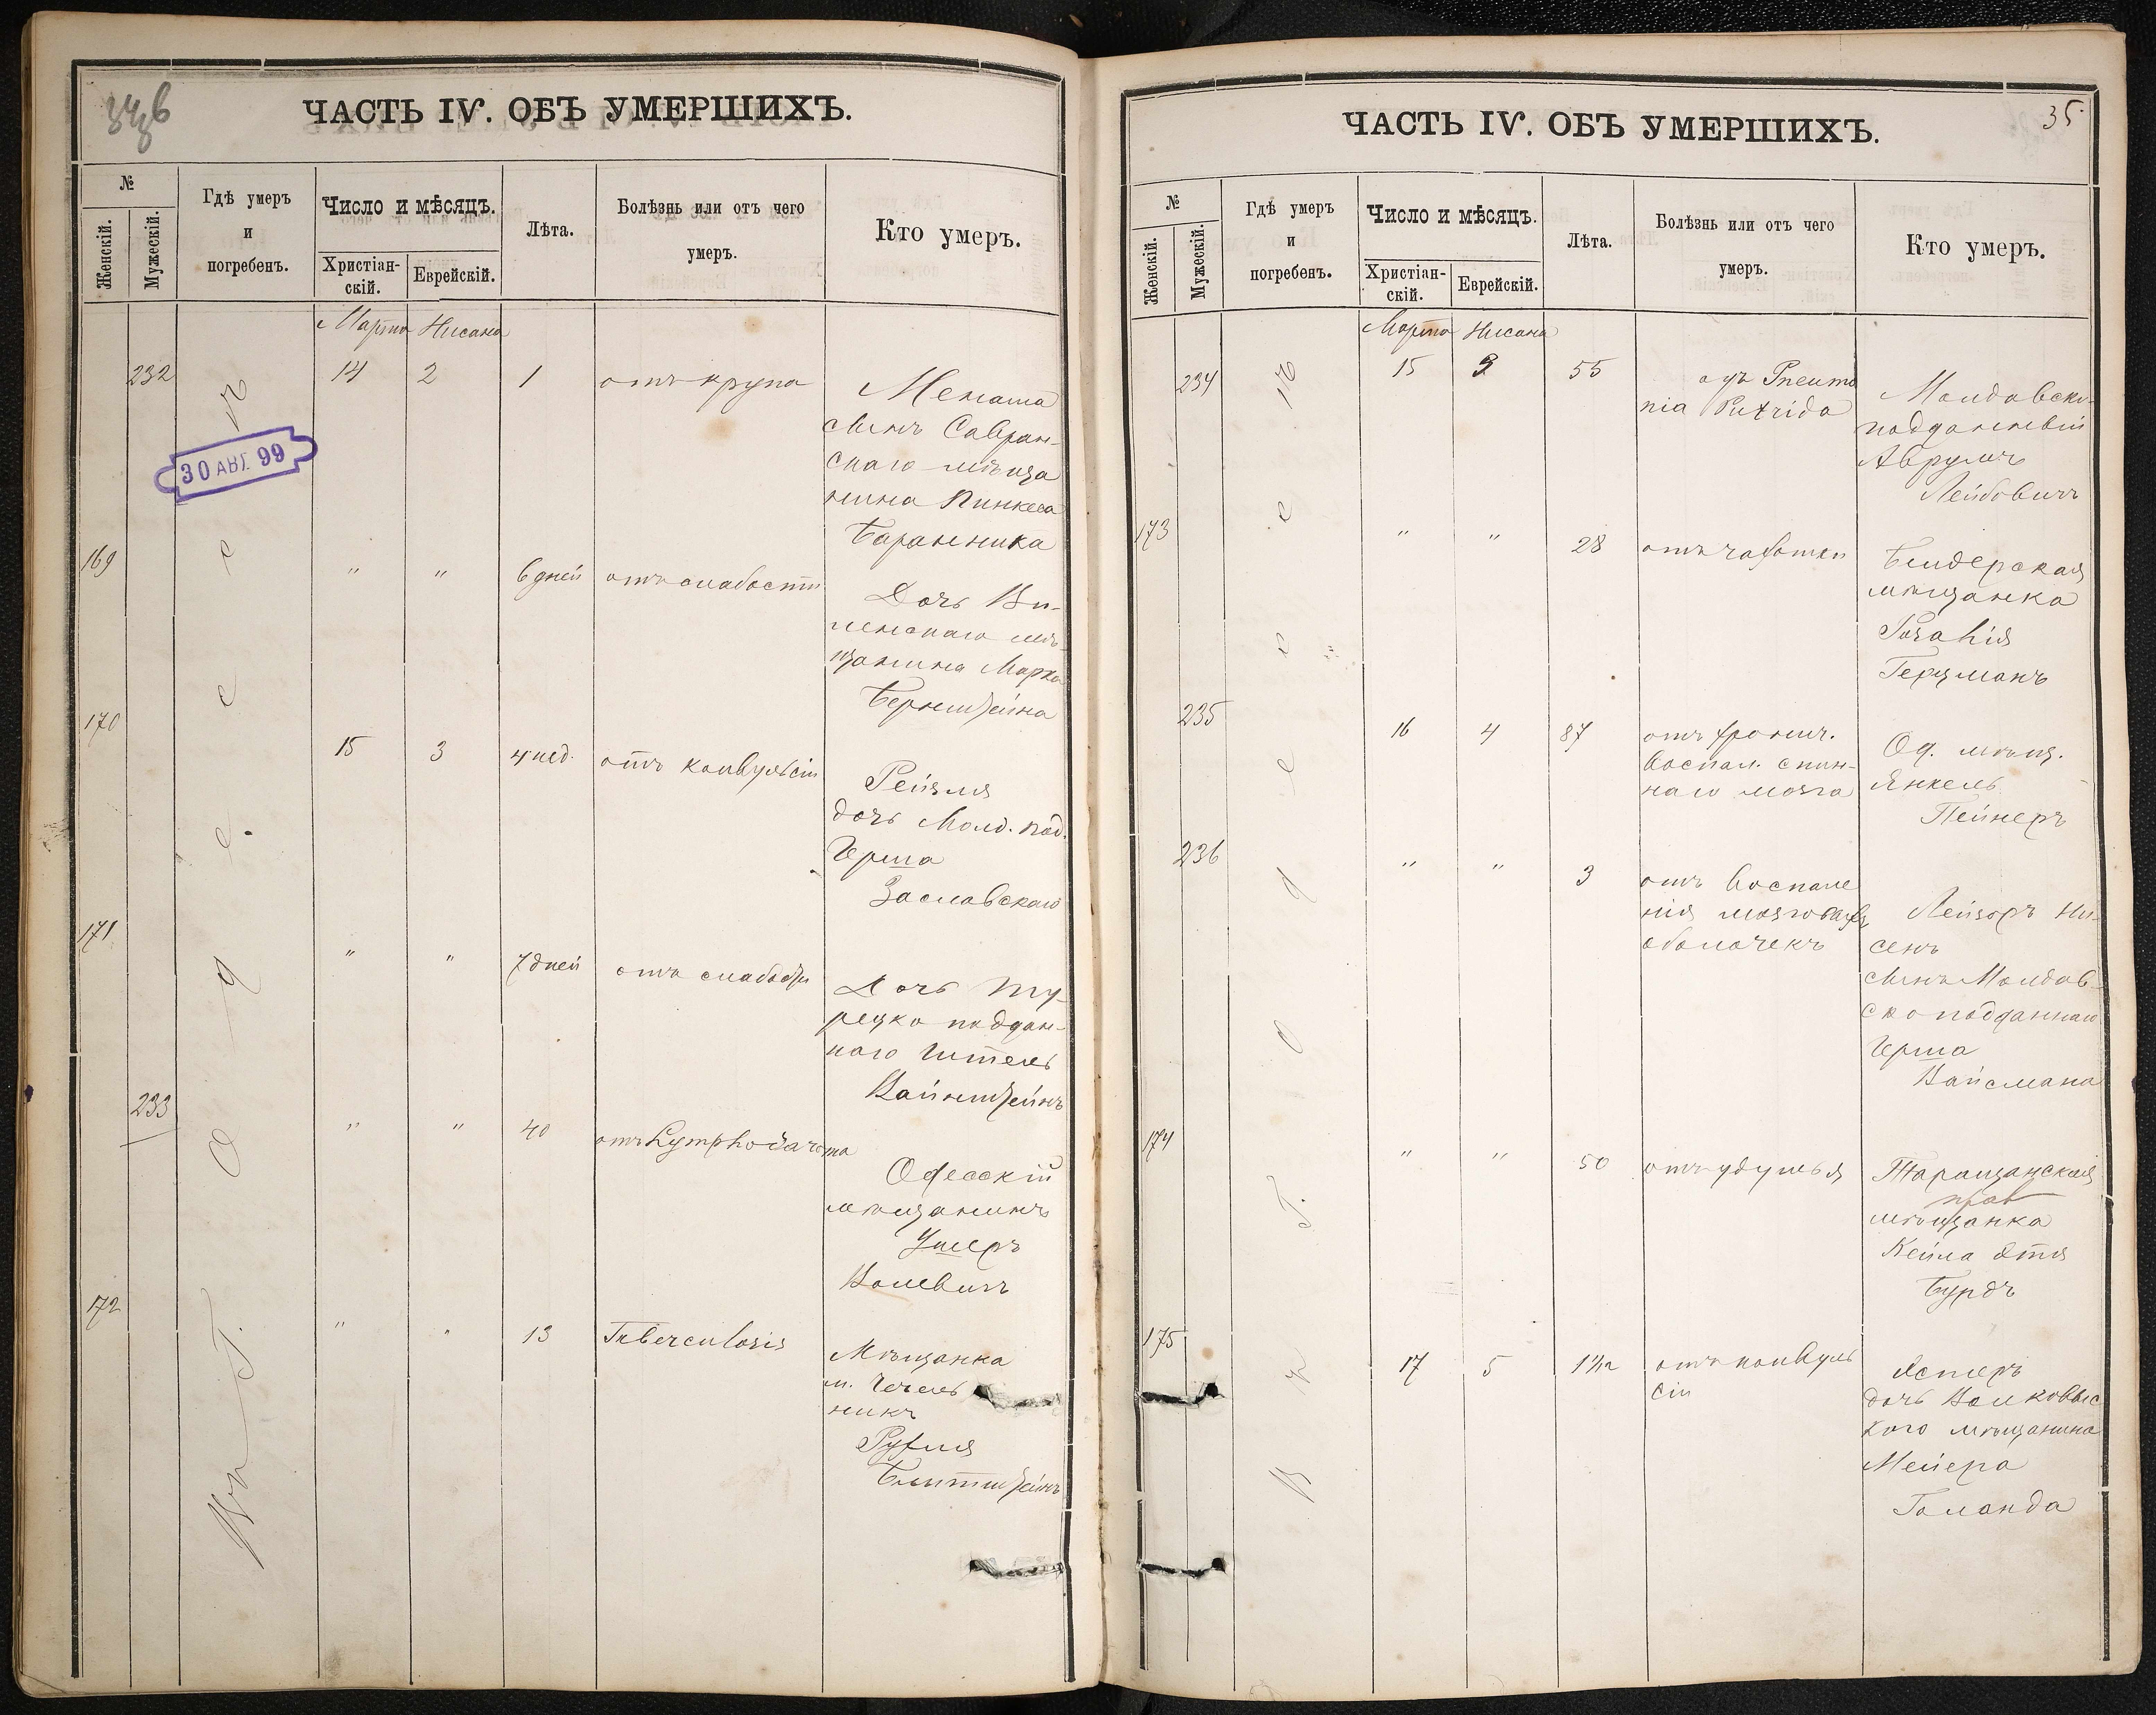 34 об
ЧАСТЬ IV. ОБЪ УМЕРШИХЪ.
№
Женскій.
Мужескій.
Гдѣ умеръ
и
погребенъ.
Число и мѣсяцъ.
Христіан-
скій.
Еврейскій.
Лѣта.
Болѣзнь или отъ чего
умеръ.
Кто умеръ.
Марта Нисана
232 14 2 1 отъ крупа
Менаша
сынъ Савран-
скаго мѣща
нина Пинкеса
Баранника
30 АВГ. 99
169 " " 6 дней отъ слабости
Дочь Ви-
ленскаго мѣ-
щанина Марка
Бернштейна
170 15 3 4 нед. отъ конвульсіи
Рейзля
дочь Молд. под.
Герша
Заславскаго
171 " " 7 дней отъ слабости
Дочь Ту-
рецко поддан-
наго
Вайнштейнъ
233 " " 40 отъ Lymphosarcoma
Одесскій
мѣщанинъ
Ушеръ
Волевичъ
172 " " 13 Tuberculosis
Мѣщанка
м. Чечель
никъ
Рухля
Въ г. Одессѣ
ЧАСТЬ IV. ОБЪ УМЕРШИХЪ.
35
№
Женскій.
Мужескій.
Гдѣ умеръ
и
погребенъ.
Число и мѣсяцъ.
Христіан-
скій.
Еврейскій.
Лѣта.
Болѣзнь или отъ чего
умеръ.
Кто умеръ.
Марта Нисана
234 15 3 55 отъ Pneumo
nia Putrida
Молдавско-
подданный
Аврумъ
Лейбовичъ
173 " " 28 отъ чахотки
Бендерская
мѣщанка
Герцманъ
235 16 4 87 отъ хронич.
воспал. спин-
наго мозга
Од. мѣщ.
Янкель
Пейнеръ
236 " " 3 отъ воспале
нія мозговыхъ
оболочекъ
Лейзоръ Ни-
сенъ
сынъ Молдав-
ско подданнаго
Герша
Вайсмана
174 " " 50 отъ удушья
Таращанская
мѣщанка
Кейла Этя
Бурдъ
175 17 5 1½ отъ конвуль
сіи
Эстеръ
дочь Волковыс
кого мѣщанина
Мейера
Голанда
Въ г. Одессѣ